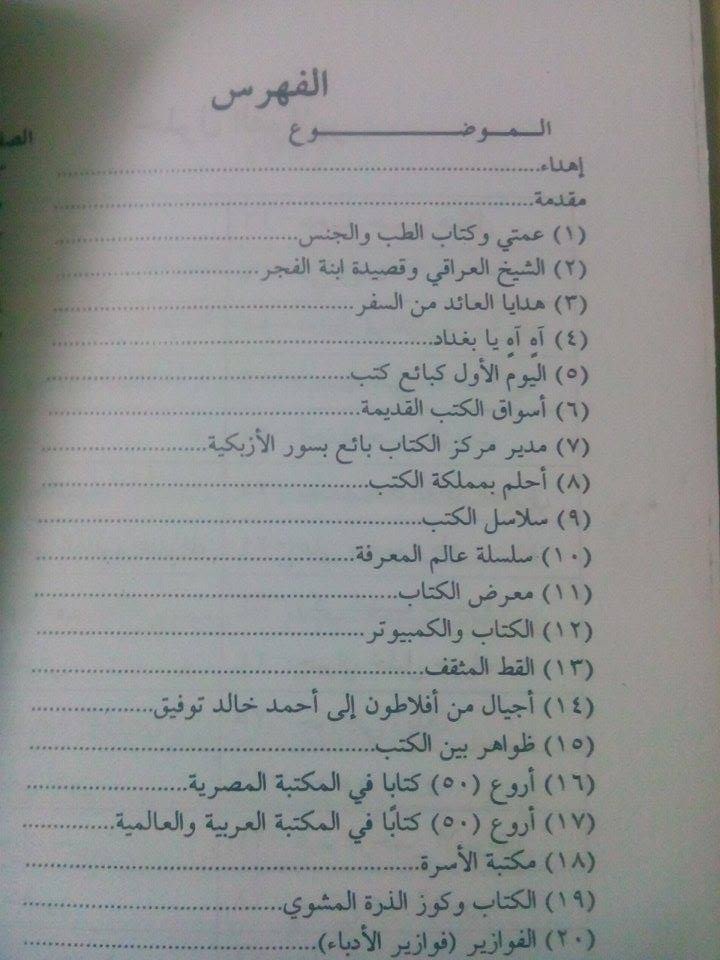 الفهرس
المـوضـوع
إهداء
مقدمة
(١) عمتي وكتاب الطب والجنس
(٢) الشيخ العراقي وقصيدة ابنة الفجر
(٣) هدايا العائد من السفر
(٤) آهٍ آهٍ يا بغداد
(٥) اليوم الأول كبائع كتب
(٦) أسواق الكتب القديمة
(٧) مدير مركز الكتاب بائع بسور الأزبكية
(٨) أحلم بمملكة الكتب
(٩) سلاسل الكتب
(١٠) سلسلة عالم المعرفة
(١١) معرض الكتاب
(١٢) الكتاب والكمبيوتر
(١٣) القط المثقف
(١٤) أجيال من أفلاطون إلى أحمد خالد توفيق
(١٥) ظواهر بين الكتب
(١٦) أروع (٥٠) كتابا في المكتبة المصرية
(١٧) أروع (٥٠) كتابًا في المكتبة العربية والعالمية
(١٨) مكتبة الأسرة
(١٩) الكتاب وكوز الذرة المشوي
(٢٠) الفوازير (فوازير الأدباء)